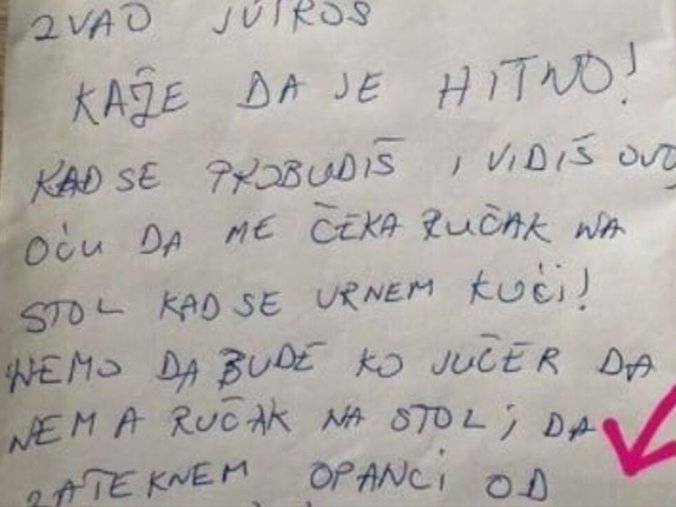 ZVAO JUTROS
KAŽE DA JE HITNO!
KAD SE PROBUDIŠ I VIDIŠ OVO
OĆU DA ME ČEKA RUČAK NA
STOL KAD SE VRNEM KUĆI!
NEMO DA BUDE KO JUČER DA
NEMA RUČAK NA STOL I DA
ZATEKNEM OPANCI OD